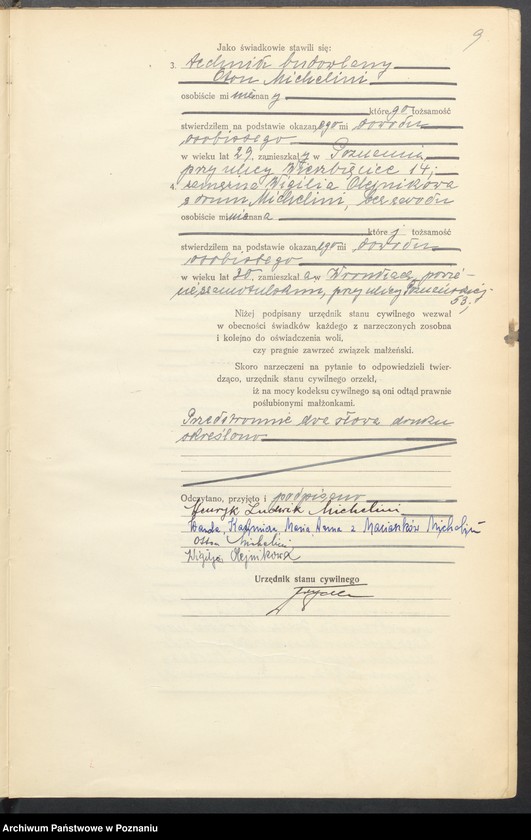 9
Jako świadkowie stawili się:
3. technik budowlany
Oton Michelini
osobiście mi nieznany
którego tożsamość
stwierdziłem na podstawie okazanego mi dowodu
osobistego
w wieku lat 29, zamieszkały w Poznaniu,
przy ulicy Wierzbięcice 14;
4. zamężna Wigilia Olejnikowa
z domu Michelini, bez zawodu
osobiście mi nieznana
której tożsamość
stwierdziłem na podstawie okazanego mi dowodu
osobistego
w wieku lat 30, zamieszkała w Wronkach, powie-
cie szamotulskim, przy ulicy Poznańskiej
53,
Niżej podpisany urzędnik stanu cywilnego wezwał
w obecności świadków każdego z narzeczonych zosobna
i kolejno do oświadczenia woli,
czy pragnie zawrzeć związek małżeński.
Skoro narzeczeni na pytanie to odpowiedzieli twier-
dząco, urzędnik stanu cywilnego orzekł,
iż na mocy kodeksu cywilnego są oni odtąd prawnie
poślubionymi małżonkami.
Przedstronnie dwa słowa druku
określono
Odczytano, przyjęto i podpisano
Henryk Ludwik Michelini
Wanda, Maria, Anna z Marciniaków Michelini
Otton Michelini
Wigilja Olejnikowa
Urzędnik stanu cywilnego
Archiwum Państwowe w Poznaniu